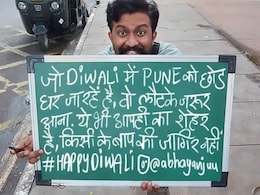 जो DIWALI में PUNE को छोड़
घर जा रहें हैं, वो लौटके जरूर
आना, ये भी आपही का शहर
है, किसी के बाप की जागिर नहीं
#HAPPYDIWALI @abhayanjuu